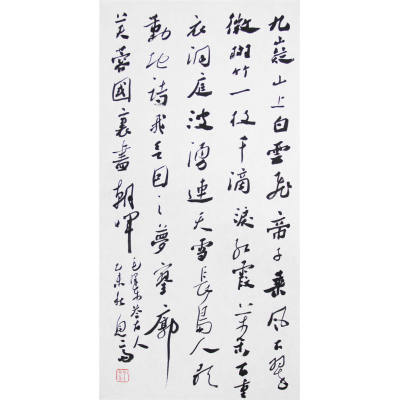 九嶷山上白雲飛帝子乘風下翠
微斑竹一枝千滴淚紅霞萬朵百重
衣洞庭波湧連天雪長島人歌
動地詩我欲因之夢寥廓
芙蓉國裏盡朝暉
毛澤東答友人
乙未秋